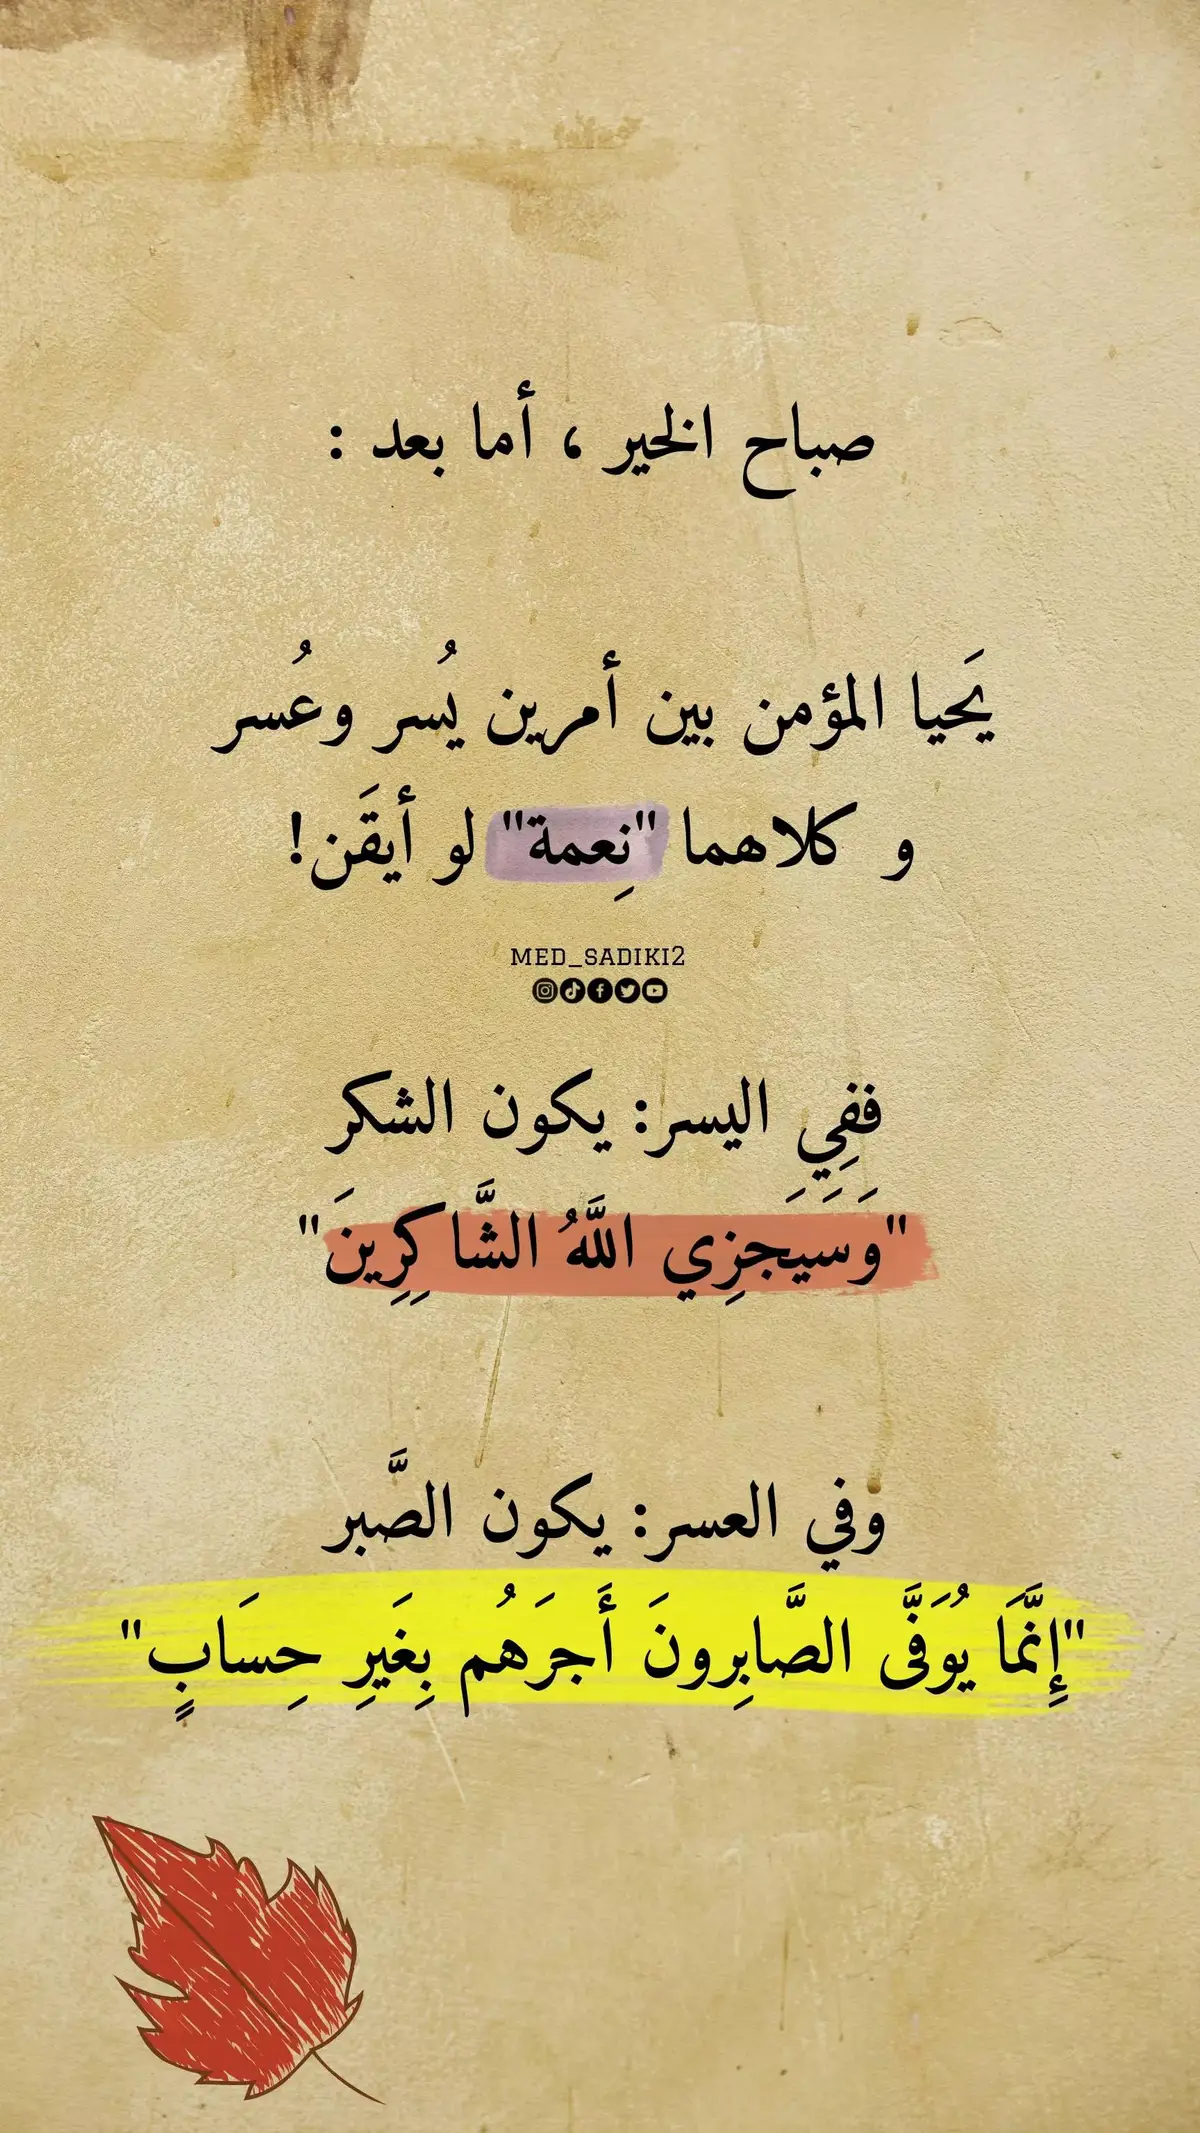 صباح الخير ، أما بعد :
يَحيا المؤمن بين أمرين يُسر وعُسر
و كلاهما "نِعمة" لو أيقَن!
MED_SADIKI2
ففِي اليسر: يكون الشكر
"وَسَيَجزِي اللَّهُ الشَّاكِرِينَ"
وفي العسر: يكون الصَّبر
"إِنَّمَا يُوَفَّى الصَّابِرونَ أَجرَهُم بِغَيرِ حِسَابٍ"